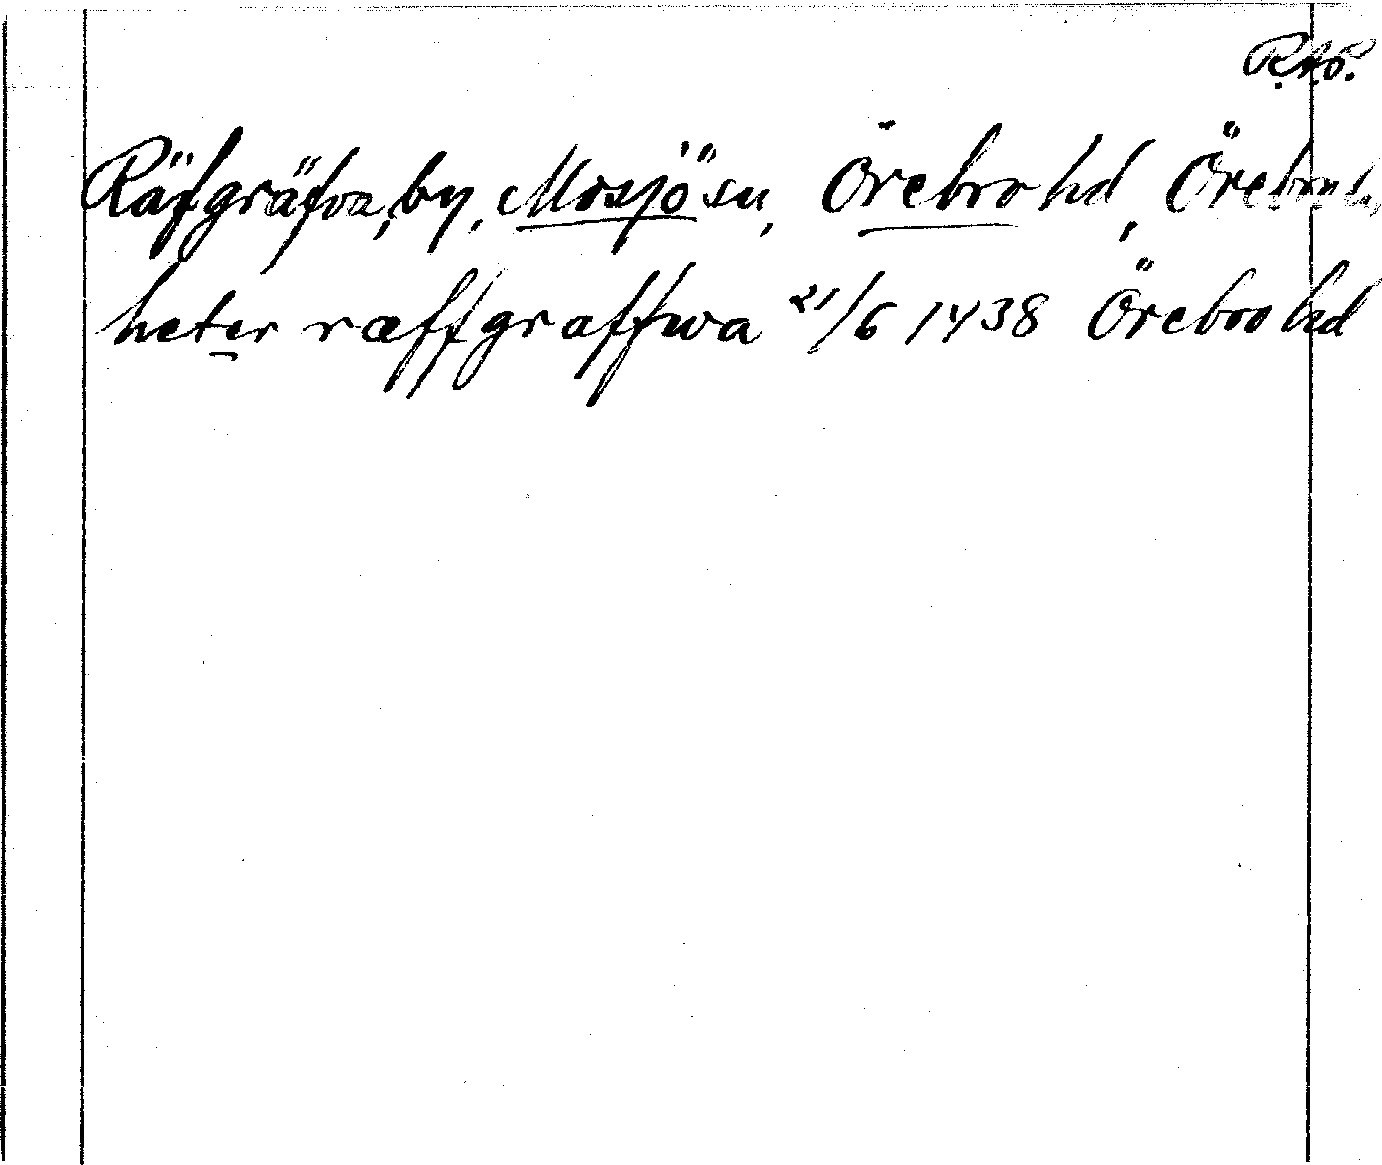 R.A.Ö.
Räfgräfva, by, Mosjö sn, Örebro hd, Örebro l.,
heter ræffgraffwa 21/6 1438 Örebro hd